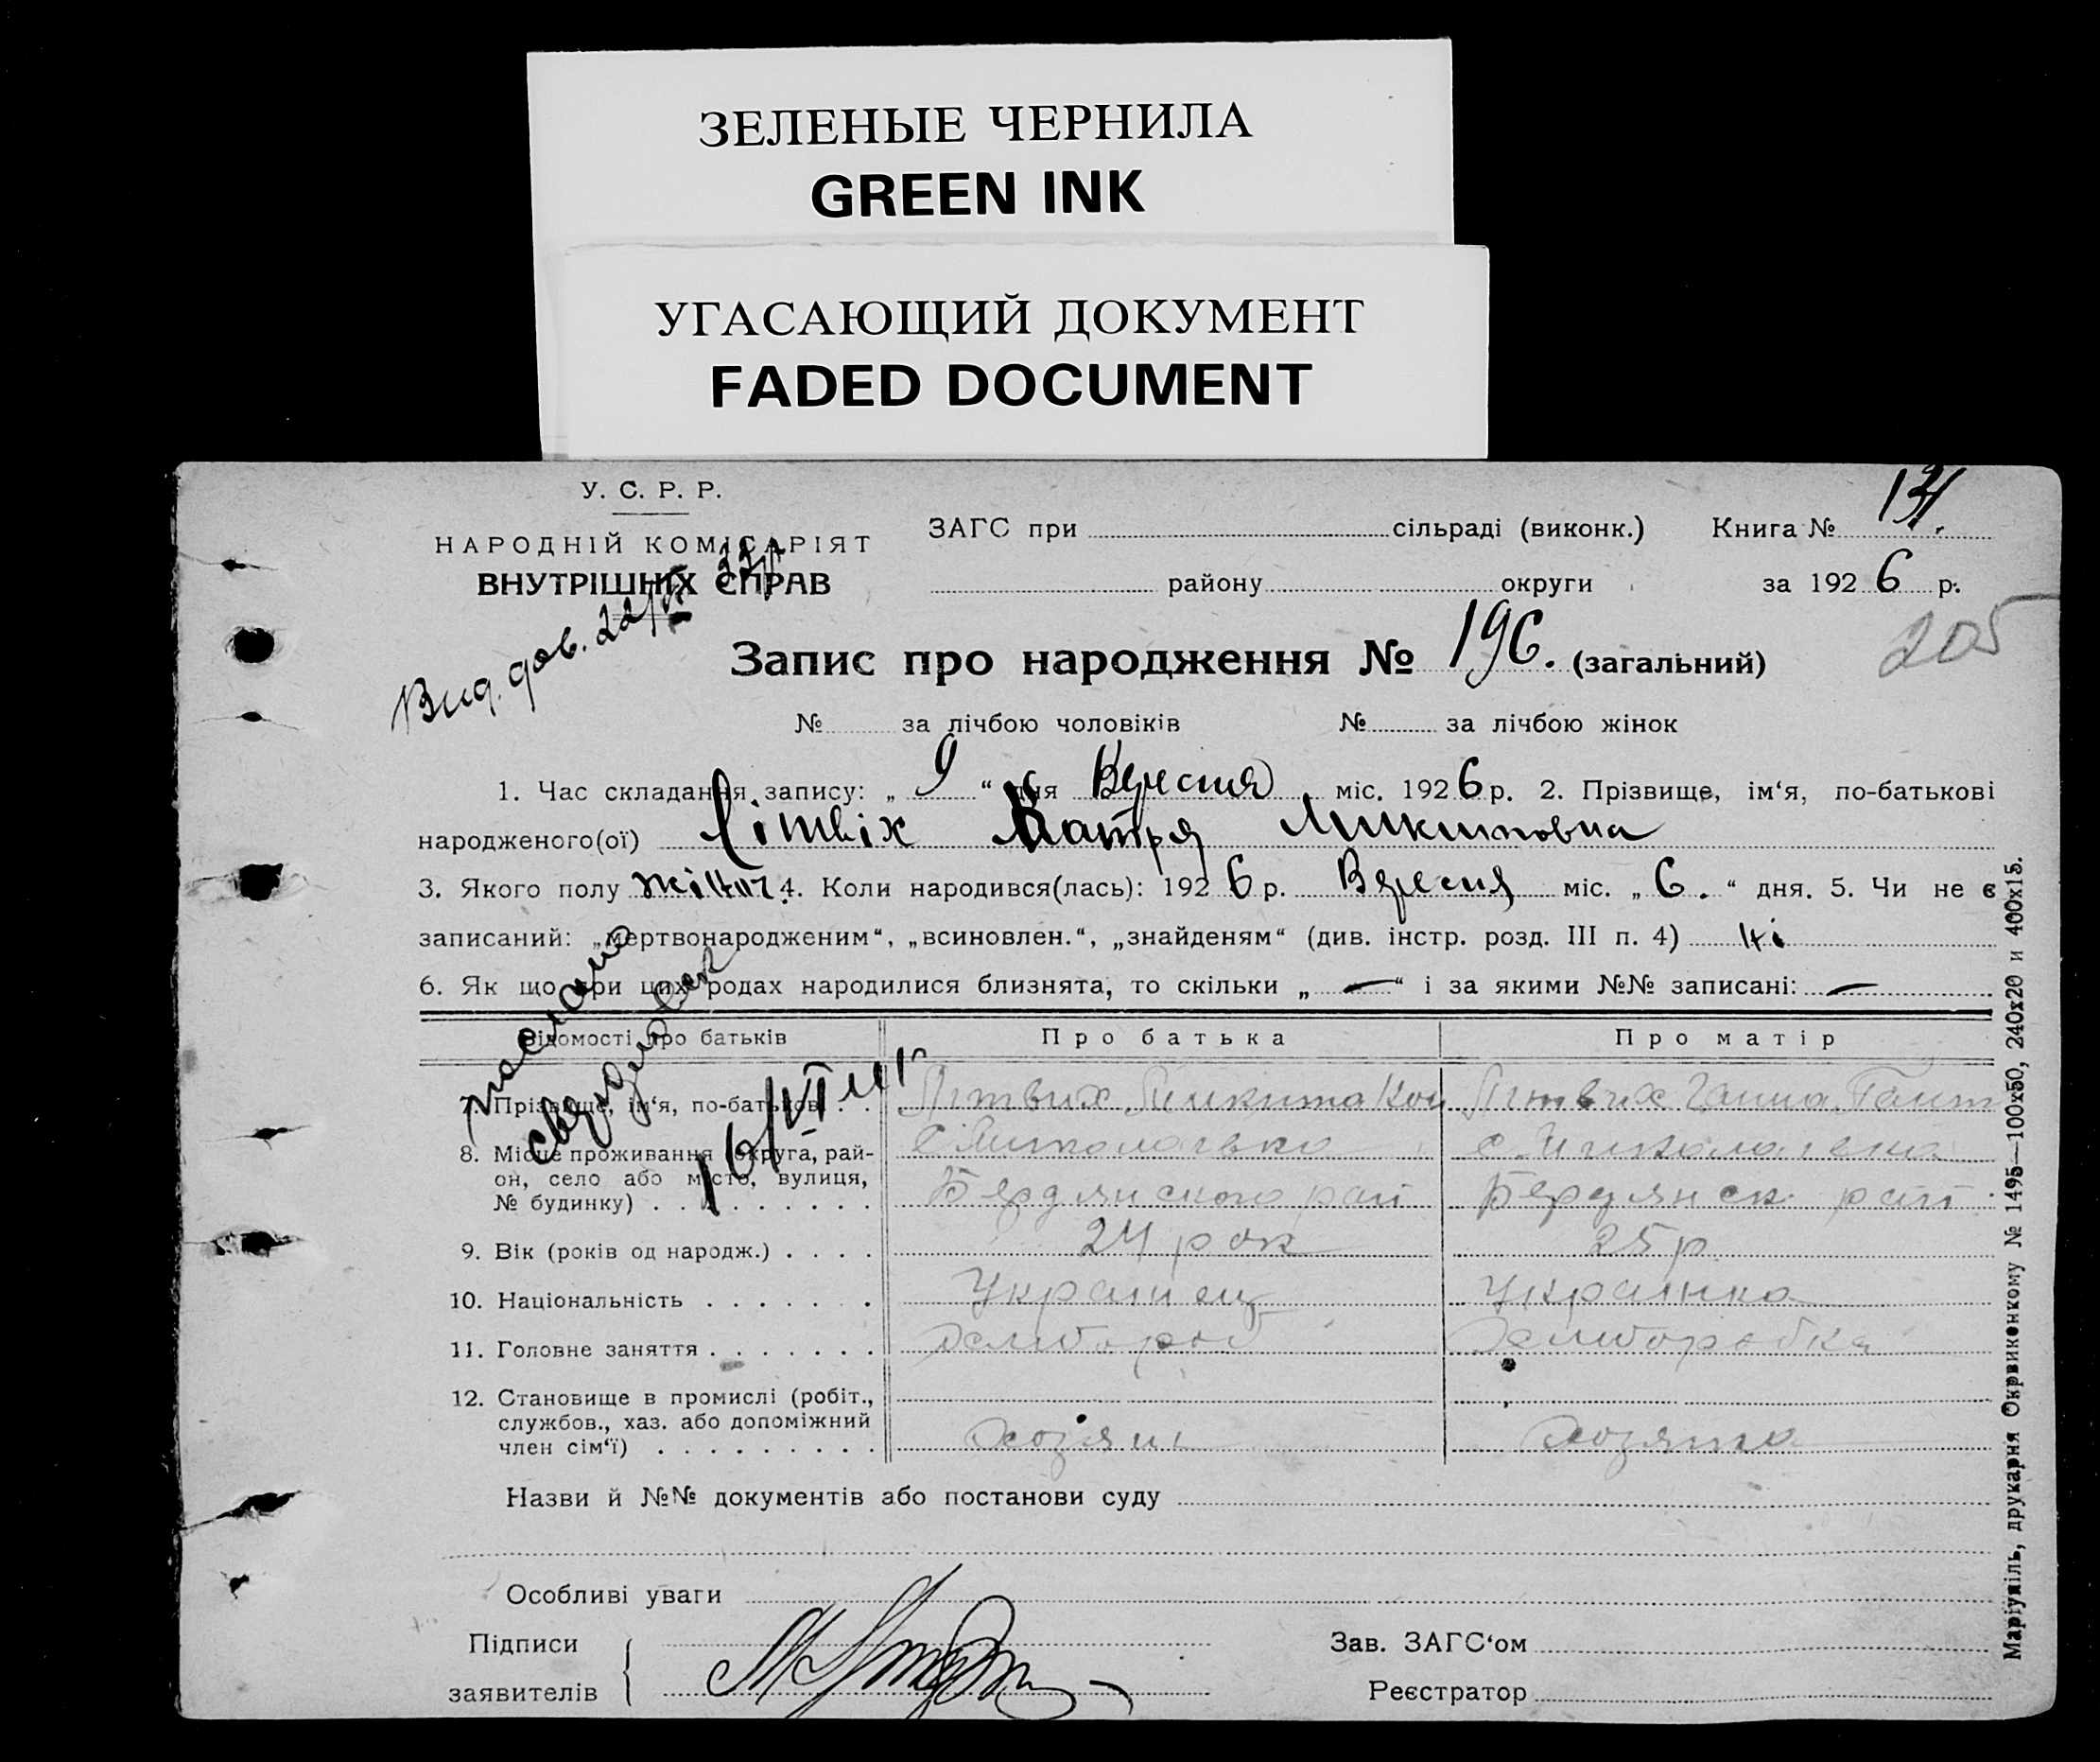 ЗЕЛЕНЫЕ ЧЕРНИЛА
GREEN INK
УГАСАЮЩИЙ ДОКУМЕНТ
FADED DOCUMENT
У. С. Р. Р.
НАРОДНІЙ КОМІСАРІЯТ
ВНУТРІШНІХ СПРАВ
ЗАГС при сільраді (виконк.) Книга №
району округи за 1926 р.
Вид. дов. 22/
Запис про народження № 196. (загальний)
205
№ за лічбою чоловіків № за лічбою жінок
1. Час складання запису: „ 9 “ дня Вересня міс. 1926 р. 2. Прізвище, ім‘я, по-батькові
народженого(ої) Літвіх Катря Микитовна
3. Якого полу жіноч. 4. Коли народився(лась): 1926 р. Вересня міс. „ 6. “ дня. 5. Чи не є
записаний: „мертвонародженим“, „всиновлен.“, „знайденям“ (див. інстр. розд. III п. 4) ні
6. Як що при цих родах народилися близнята, то скільки „ — “ і за якими №№ записані: —
Відомості про батьків Про батька Про матір
7. Прізвище, ім‘я, по-батькові . . Литвих Микита Литвих Ганна
8. Місце проживання (округа, рай-
он, село або місто, вулиця,
№ будинку) . . . . . . . . . Бердянского рай Бердянск. рай.
9. Вік (років од народж.) . . . . 24 рок 25 р
10. Національність . . . . . . . Украинец Украінка
11. Головне заняття . . . . . . . Хлибороб Хлиборобка
12. Становище в промислі (робіт.,
службов., хаз. або допоміжний
член сім‘ї) . . . . . . . . . Хозяин Хозяйка
послано
16/VII 41 г
Назви й №№ документів або постанови суду
Особливі уваги
Підписи
заявителів
Зав. ЗАГС‘ом
Реєстратор
Маріупіль, друкарня Окрвиконкому № 1495—100х50, 240х20 и 400х15.